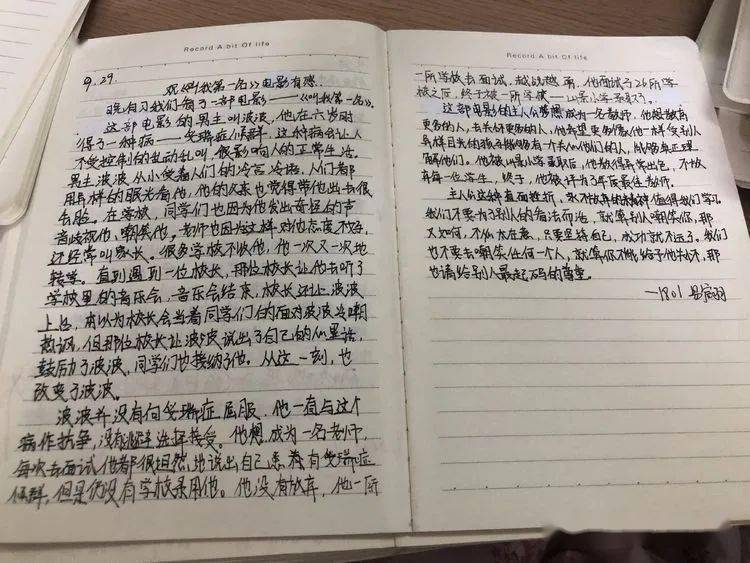 Record A bit Of life
9.29.
观《叫我第一名》电影有感.
晚自习我们看了一部电影——《叫我第一名》.
这部电影的男主叫波波,他在六岁时
得了一种病——妥瑞症候群,这种病会让人
不受控制的乱动乱叫.很影响人的正常生活.
男主波波从小受着人们的冷言冷语,人们都
用异样的眼光看他,他的父亲也觉得带他出去很
丢脸。在学校,同学们也因为他发出奇怪的声
音歧视他,嘲笑他。老师也因为这样对他态度不好,
还经常叫家长。很多学校不收他,他一次又一次地
转学。直到遇到一位校长,那位校长让他去听了
学校里的音乐会,音乐会结束,校长还让波波
上台,本以为校长会当着同学们的面对波波冷嘲
热讽,但那位校长让波波说出了自己的心里话,
鼓励了波波,同学们也接纳了他。从这一刻,也
改变了波波。
波波并没有向妥瑞症屈服.他一直与这个
病作抗争,没有选择接受。他想成为一名老师,
每次去面试他都很坦然地说出自己患有妥瑞症
候群,但是仍没有学校录用他。他没有放弃,他一所
Record A bit Of life
一所学校去面试,越战越勇,他面试了26所学
校之后,终于被一所学校——山景小学录取了。
这部电影的主人公梦想成为一名教师,他想教育
更多的人,去关怀更多的人,他希望更多像他一样受别人
异样目光的孩子能够有一个关心他们的人,能够真正理
解他们。他被山景小学录取后,他教得异常出色,不放
弃每一位学生,终于,他被评为了年度最佳教师。
主人公这种直面挫折,永不放弃的精神值得我们学习。
我们不要为了别人的看法而活,就算别人嘲笑你,那
又如何,不必太在意,只要坚持自己,成功就不远了。我们
也不要去嘲笑任何一个人,就算你不能给予他关怀,那
也请给别人最起码的尊重。
—1801